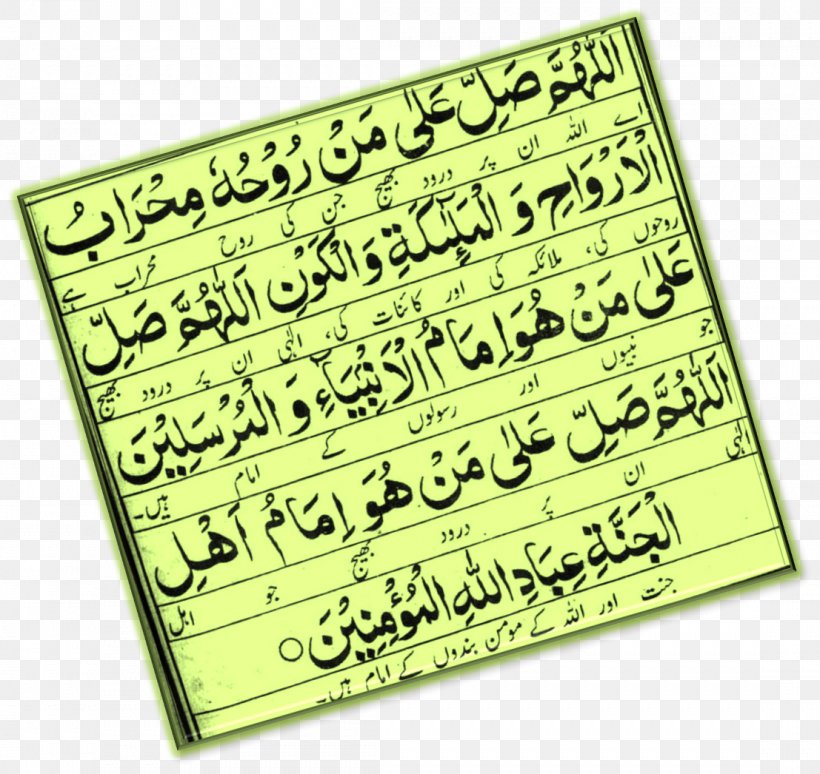 اَللّٰهُمَّ صَلِّ عَلٰى مَنْ رُوْحُهٗ مِحْرَابُ
اے اللہ ان پر درود بھیج جن کی روح محراب ہے
الْاَرْوَاحِ وَ الْمَلٰٓئِكَةِ وَالْكَوْنِ اَللّٰهُمَّ صَلِّ
روحوں کی، ملائکہ کی اور کائنات کی، الٰہی ان پر درود بھیج
عَلٰى مَنْ هُوَ اِمَامُ الْاَنْبِيَآءِ وَ الْمُرْسَلِيْنَ
جو نبیوں اور رسولوں کے امام ہیں۔
اَللّٰهُمَّ صَلِّ عَلٰى مَنْ هُوَ اِمَامُ اَهْلِ
الٰہی ان پر درود بھیج جو اہل
الْجَنَّةِ عِبَادِ اللّٰهِ الْمُؤْمِنِيْنَ ○
جنت اور اللہ کے مومن بندوں کے امام ہیں۔